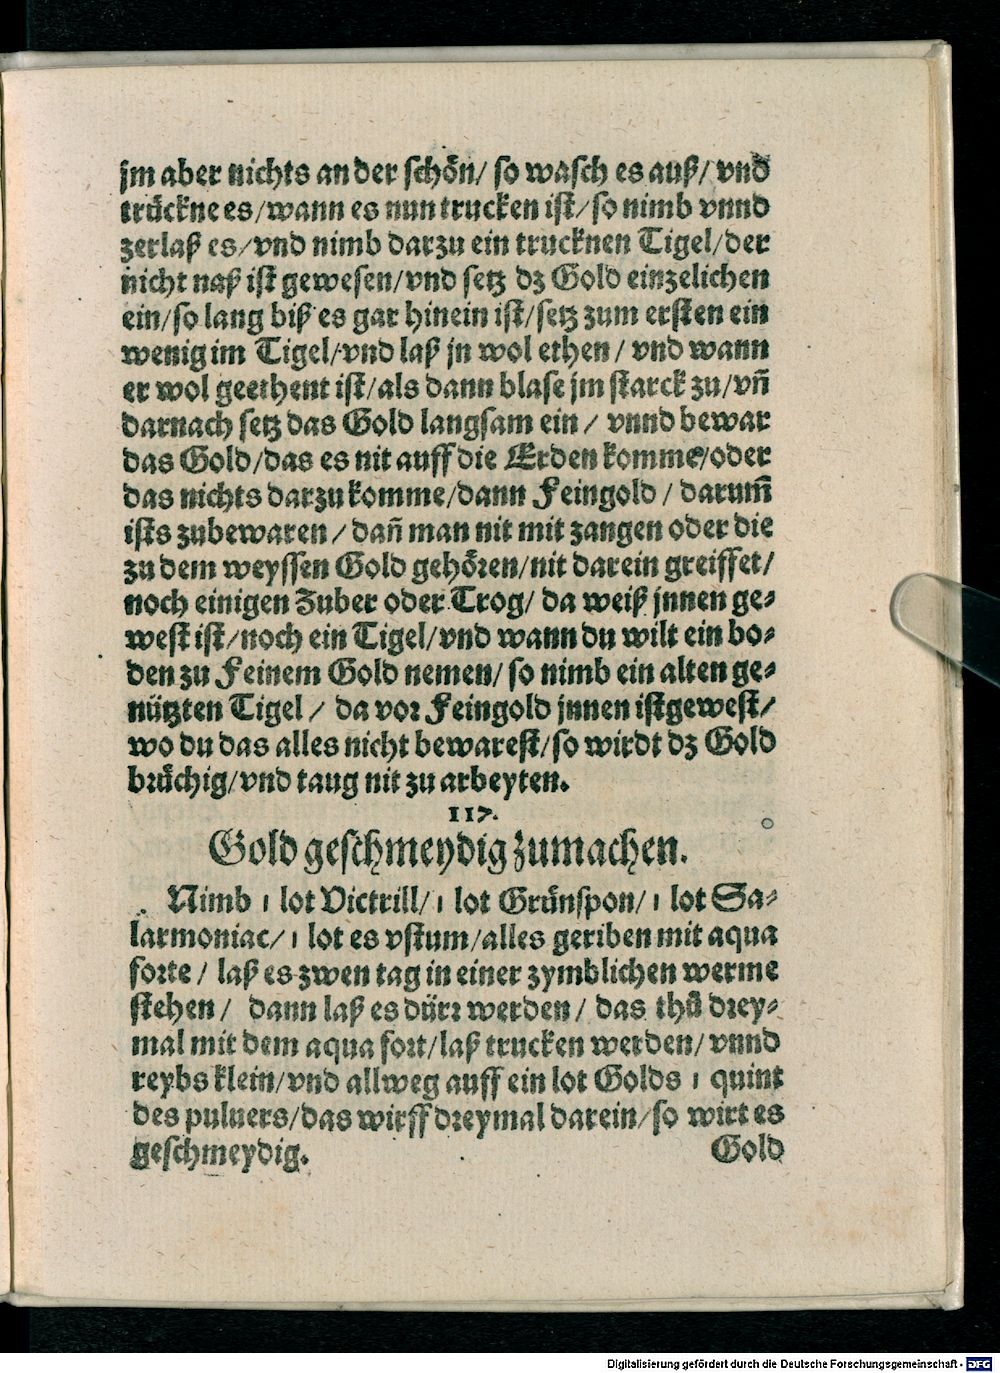 jm aber nichts an der schoͤn/ so wasch es auß/ vnd
truͤckne es/wann es nun trucken ist/so nimb vnnd
zerlaß es/vnd nimb darzu ein trucknen Tigel/der
nicht naß ist gewesen/vnd setz dz Gold einzelichen
ein/so lang biß es gar hinein ist/setz zum ersten ein
wenig im Tigel/vnd laß jn wol ethen/ vnd wann
er wol geethent ist/als dann blase jm starck zu/vñ
darnach setz das Gold langsam ein/ vnnd bewar
das Gold/das es nit auff die Erden komme/oder
das nichts darzu komme/dann Feingold/ darum̃
ists zubewaren/ dañ man nit mit zangen oder die
zu dem weyssen Gold gehoͤren/nit darein greiffet/
noch einigen Zuber oder Trog/ da weiß jnnen ge⸗
west ist/noch ein Tigel/vnd wann du wilt ein bo⸗
den zu Feinem Gold nemen/ so nimb ein alten ge⸗
nuͤtzten Tigel/ da vor Feingold jnnen ist gewest/
wo du das alles nicht bewarest/so wirdt dz Gold
bruͤchig/vnd taug nit zu arbeyten.
117.
Gold geschmeydig zumachen.
Nimb 1 lot Victrill/1 lot Gruͤnspon/1 lot Sa⸗
larmoniac/1 lot es vstum/alles geriben mit aqua
forte/ laß es zwen tag in einer zymblichen werme
stehen/ dann laß es duͤrr werden/ das thuͦ drey⸗
mal mit dem aqua fort/laß trucken werden/ vnnd
reybs klein/vnd allweg auff ein lot Golds 1 quint
des puluers/das wirff dreymal darein/so wirt es
geschmeydig.
Gold
Digitalisierung gefördert durch die Deutsche Forschungsgemeinschaft - DFG